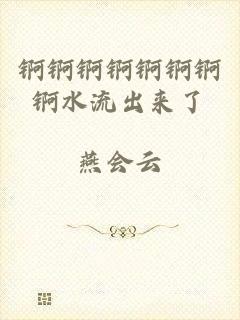 锕锕锕锕锕锕锕
锕水流出来了
燕会云